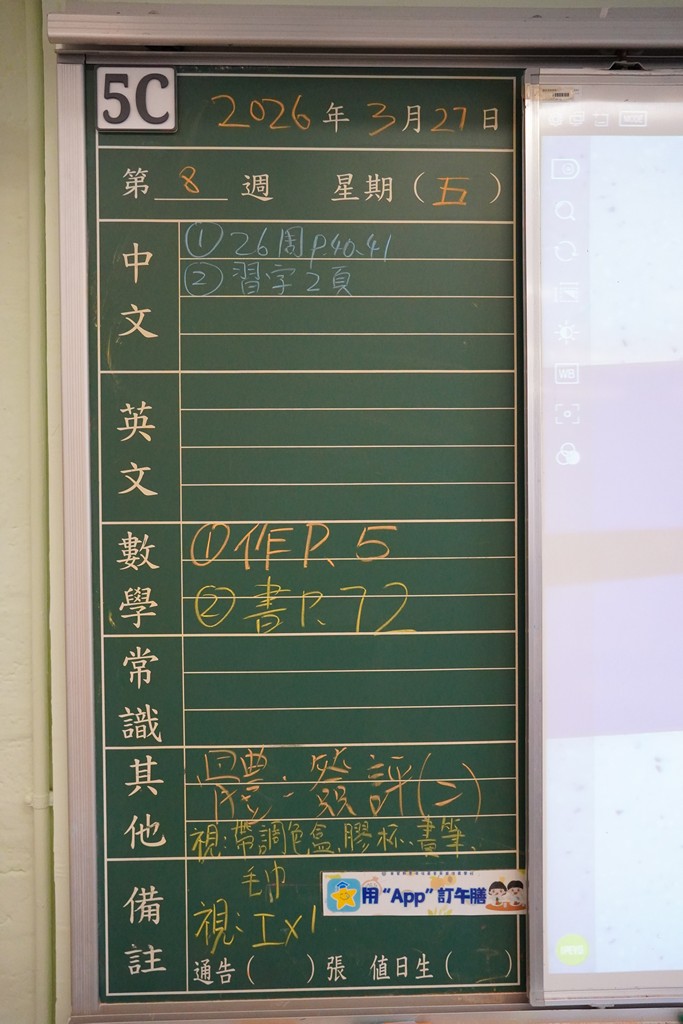 5C
2026年3月27日
第 8 週 星期（五）
中文
① 26周P.40、41
② 習字2頁
英文
數學
① 作P. 5
② 書P. 72
常識
其他
簽評(二)
視：帶調色盒、膠杯、畫筆、
毛巾
備註
視：工x1
用 “App” 訂午膳
通告（ ）張 值日生（ ）
WB